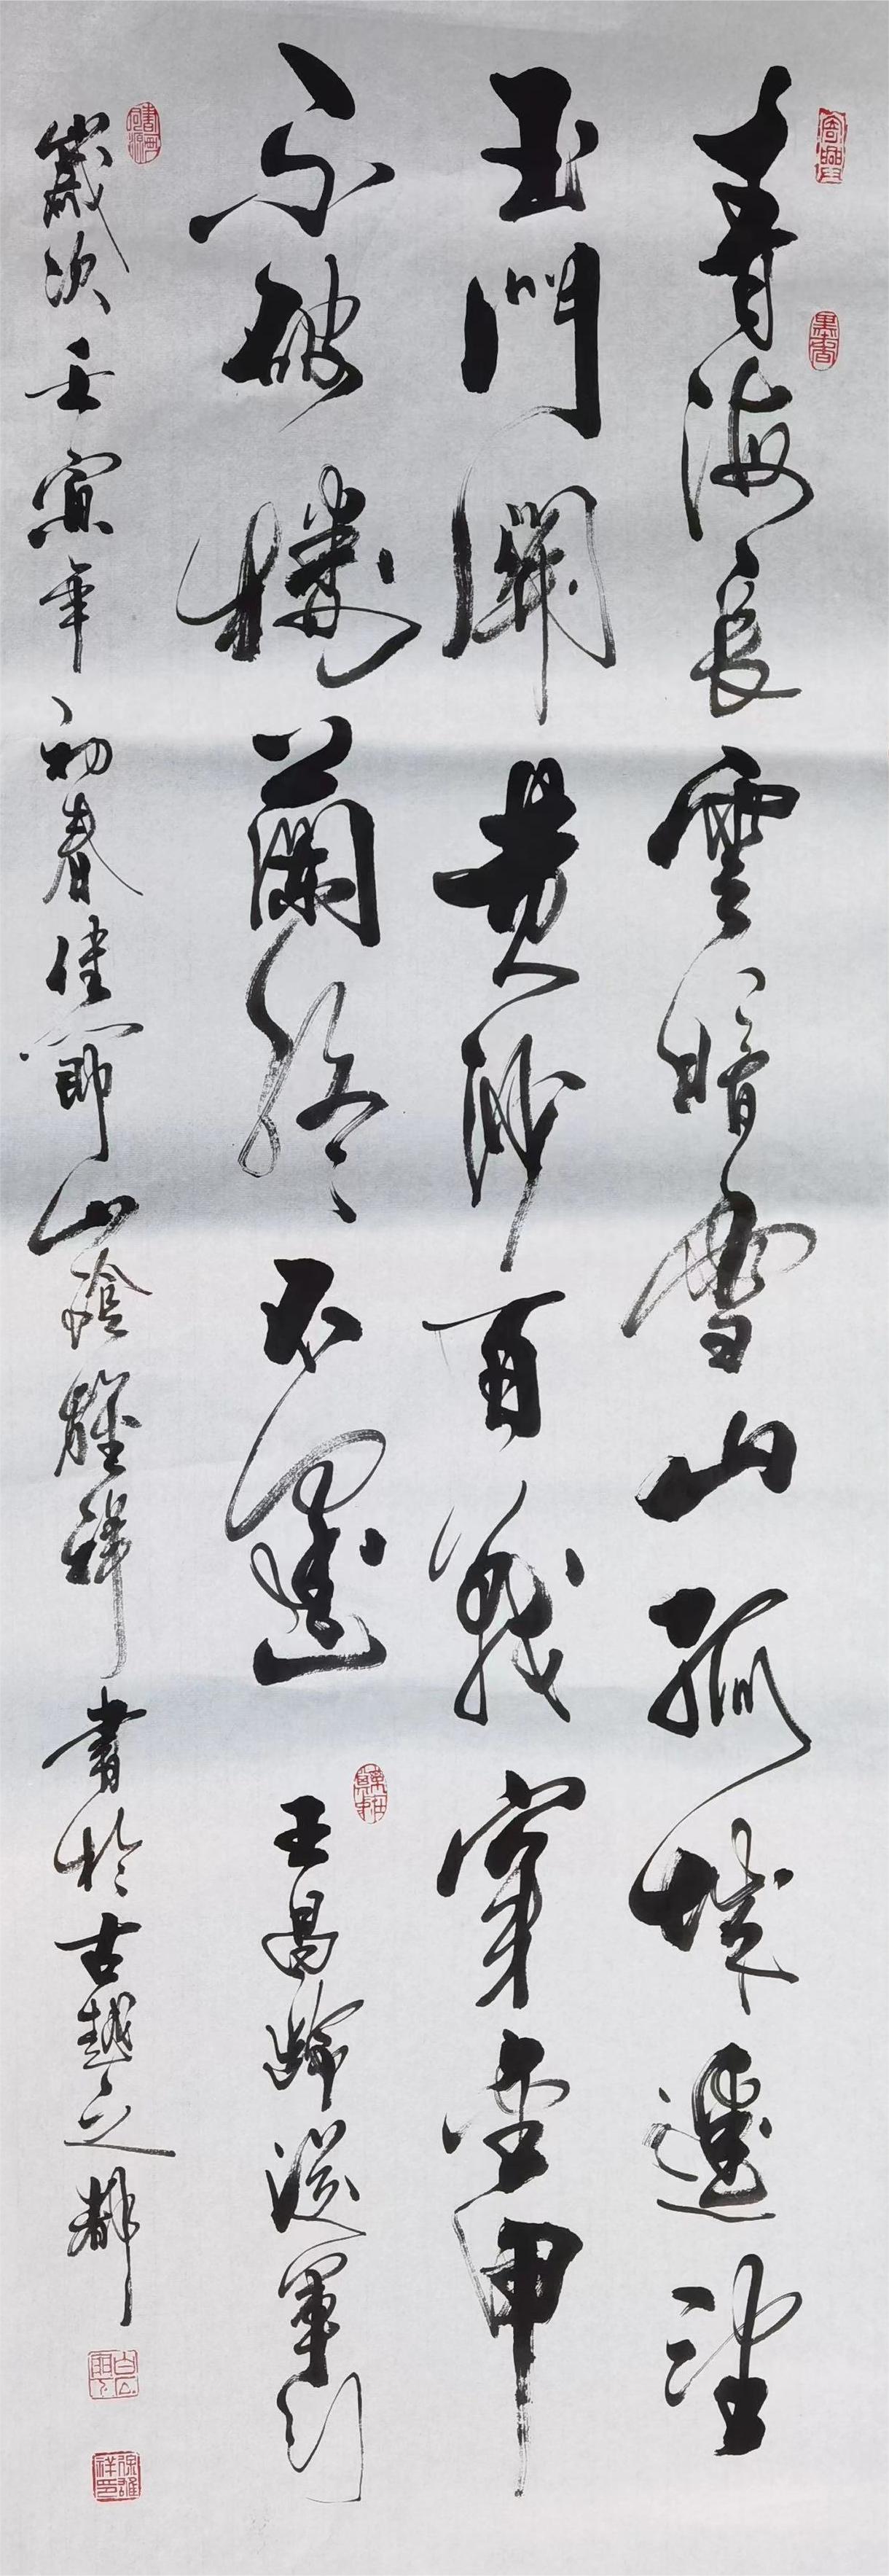 青海長雲暗雪山孤城遙望
玉門關黃沙百戰穿金甲
不破樓蘭終不還 王昌齡從軍行
歲次壬寅年初春佳節山陰雄祥書於古越之都
墨香
徐雄祥印